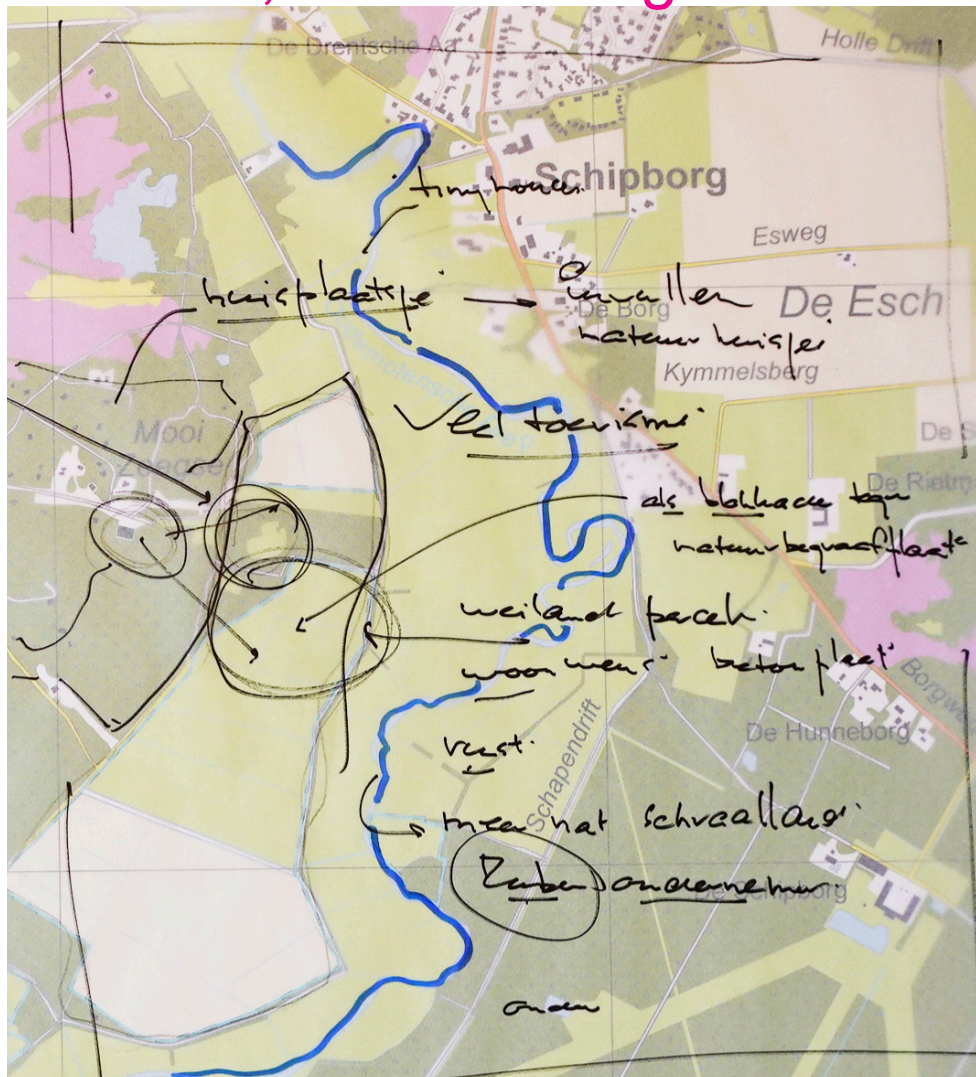 De Drentsche Aa
Holle Drift
Schipborg
tiny houses
Esweg
huisplaatsje → 
De Borg
natuurhuisjes
De Esch
Kymmelsberg
Veel toerisme
Mooi
De S
De Rietm
als blokkade tegen
natuurbegraafplaats
weiland perceel
woonwens betonplaat
Borgwe
De Hunneborg
rust.
Schapendrift
meer nat schraalland
ondernemer
De Schipborg
ander